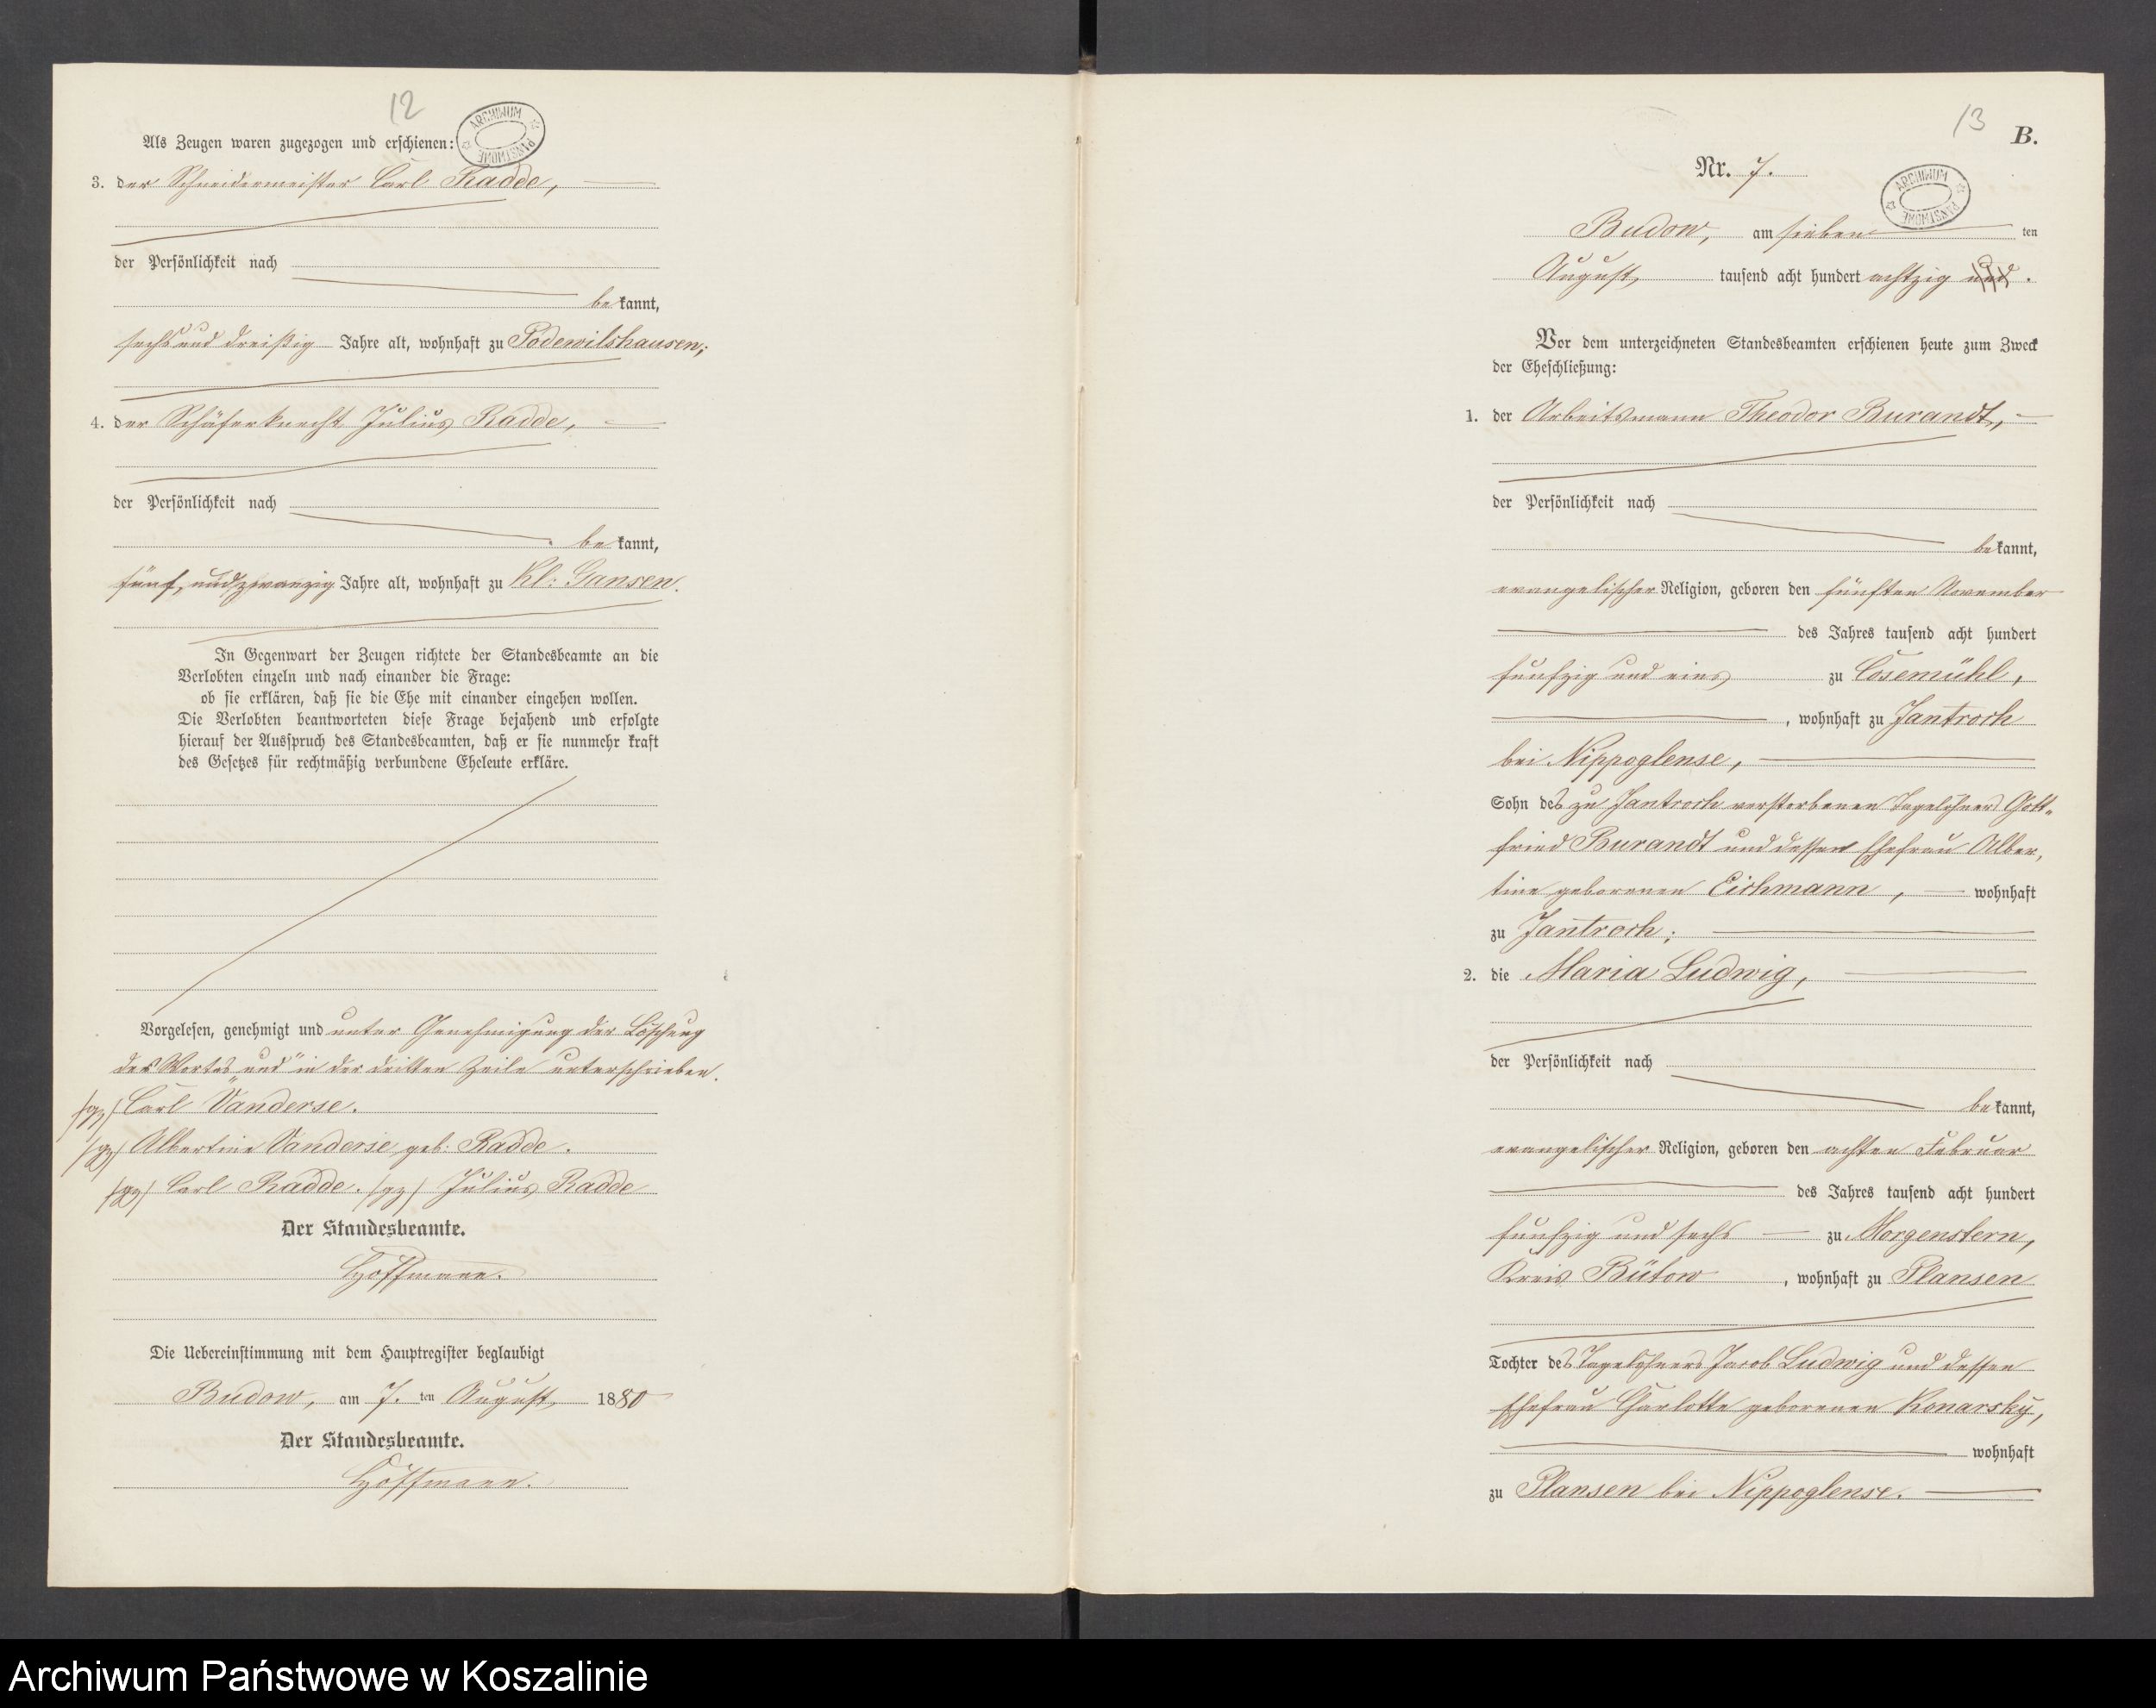 12
ARCHIWUM PAŃSTWOWE
Als Zeugen waren zugezogen und erschienen:
3. der Schneidermeister Carl Radde,
der Persönlichkeit nach
bekannt,
sechs und dreißig Jahre alt, wohnhaft zu Podewilshausen;
4. der Schäferknecht Julius Radde,
der Persönlichkeit nach
bekannt,
fünf und zwanzig Jahre alt, wohnhaft zu Kl: Gansen.
In Gegenwart der Zeugen richtete der Standesbeamte an die
Verlobten einzeln und nach einander die Frage:
ob sie erklären, daß sie die Ehe mit einander eingehen wollen.
Die Verlobten beantworteten diese Frage bejahend und erfolgte
hierauf der Ausspruch des Standesbeamten, daß er sie nunmehr kraft
des Gesetzes für rechtmäßig verbundene Eheleute erkläre.
Vorgelesen, genehmigt und unter Genehmigung der Löschung
des Wortes „und" in der dritten Zeile unterschrieben.
/gz/ Carl Vanderse.
/gz/ Albertine Vanderse geb: Radde.
/gz/ Carl Radde. /gz/ Julius Radde
Der Standesbeamte.
Hoffmann.
Die Uebereinstimmung mit dem Hauptregister beglaubigt
Budow, am 7. ten August 1880
Der Standesbeamte.
Hoffmann.
13
B.
Nr. 7.
ARCHIWUM PAŃSTWOWE
Budow, am sieben ten
August tausend acht hundert achtzig und.
Vor dem unterzeichneten Standesbeamten erschienen heute zum Zweck
der Eheschließung:
1. der Arbeitsmann Theodor Burandt,
der Persönlichkeit nach
bekannt,
evangelischer Religion, geboren den fünften November
des Jahres tausend acht hundert
funfzig und eins zu Cosemühl,
, wohnhaft zu Jantroch
bei Nippoglense,
Sohn des zu Jantroch verstorbenen Tagelöhners Gott-
fried Burandt und dessen Ehefrau Alber-
tine geborenen Eichmann, wohnhaft
zu Jantroch;
2. die Maria Ludwig,
der Persönlichkeit nach
bekannt,
evangelischer Religion, geboren den achten Februar
des Jahres tausend acht hundert
funfzig und sechs zu Morgenstern,
Kreis Bütow, wohnhaft zu Plansen
Tochter des Tagelöhners Jacob Ludwig und dessen
Ehefrau Charlotte geborenen Konarsky,
wohnhaft
zu Plansen bei Nippoglense.
Archiwum Państwowe w Koszalinie